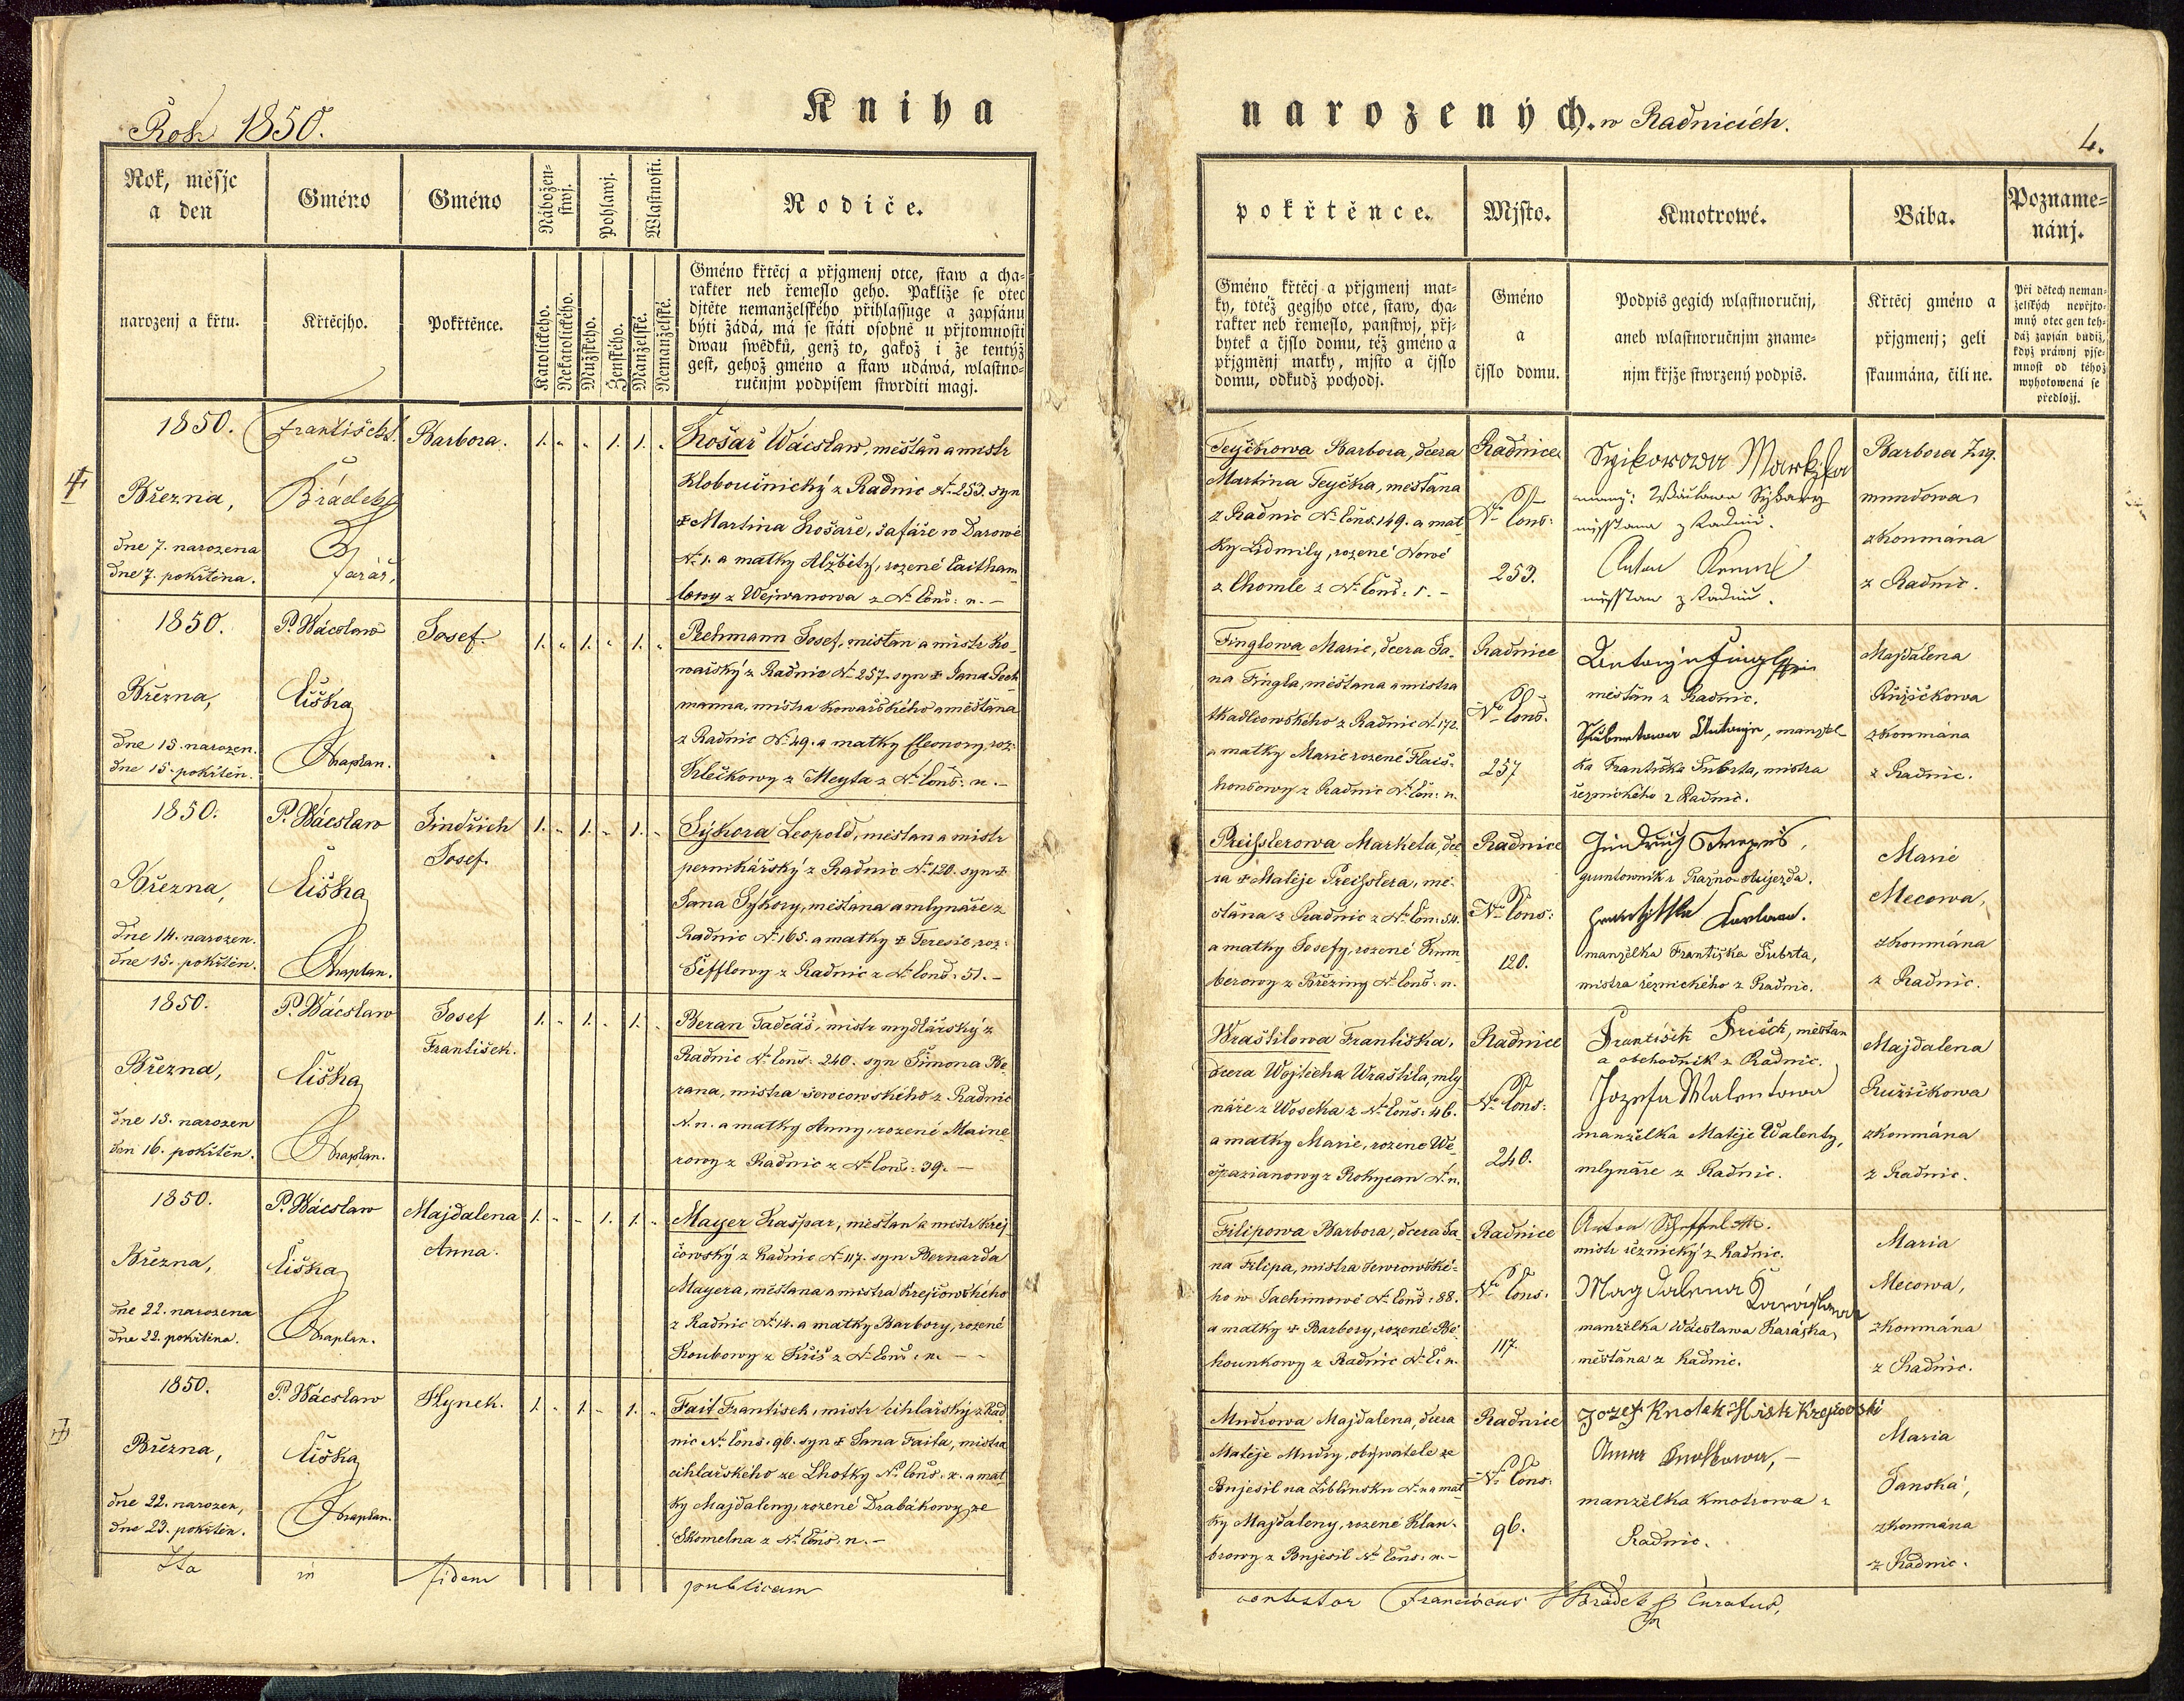 Rok 1850.
Kniha
narozených. w Radnicích.
4.
Rok, měsjc
a den
narozenj a křtu.
Gméno
Křtěcjho.
Gméno
Pokřtěnce.
Nábožen-
stwj.
Pohlawj.
Wlastnosti.
Katolického.
Nekatolického.
Mužského.
Ženského.
Manželské.
Nemanželské.
Rodiče.
Gméno křtěcj a přjgmenj otce, staw a cha-
rakter neb řemeslo geho. Pakliže se otec
djtěte nemanželského přihlassuge a zapsánu
býti žádá, má se státi osobně u přjtomnosti
dwau swědků, genž to, gakož i že tentýž
gest, gehož gméno a staw udáwá, wlastno-
ručnjm podpisem stwrditi magj.
pokřtěnce.
Gméno křtěcj a přjgmenj mat-
ky, totéž gegjho otce, staw, cha-
rakter neb řemeslo, panstwj, přj-
bytek a čjslo domu, též gméno a
přjgmenj matky, mjsto a čjslo
domu, odkudž pochodj.
Mjsto.
Gméno
a
čjslo domu.
Kmotrowé.
Podpis gegich wlastnoručnj,
aneb wlastnoručnjm zname-
njm křjže stwrzený podpis.
Bába.
Křtěcj gméno a
přjgmenj; geli
skaumána, čili ne.
Pozname-
nánj.
Při dětech neman-
želských nepřjto-
mný otec gen teh-
dáž zapsán budiž,
když práwnj pjse-
mnost od téhož
wyhotowená se
předložj.
1850.
Března,
dne 7. narozena
dne 7. pokřtěna.
František
Hrádek
Farář,
Barbora.
1. „ „ 1. 1. „
Košař Wácslaw, měšťan a mistr
Kloboučnický z Radnic N. 253. syn
Martina Košaře, šafáře w Darowě
N. 1. a matky Alžběty, rozené
z Wejwanowa z N. Cons: n. –
Teyčkowa Barbora, dcera
Martina Teyčka, měšťana
z Radnic N. Cons. 149. a mat
ky Lidmily, rozené Nowé
z Chomle z N. Cons: 1. –
Radnice
N. Cons:
253.
z Radnic.
Anton
Barbora Zyg-
mundowa,
zkoumána
z Radnic.
1850.
Března,
dne 15. narozen.
dne 15. pokřtěn.
P. Wácslaw
Liška
Kaplan.
Josef.
1. „ 1. „ 1. „
Pechmann Josef, měšťan a mistr ko-
wařský z Radnic N. 257. syn Jana Pech
manna, mistra kowařského a měšťana
z Radnic N. 49. a matky Eleonory, roz:
Klečkowy z Meyta z N. Cons: n. –
Finglowa Marie, dcera Ja-
na Fingla, měšťana a mistra
tkadlcowského z Radnic N. 172.
a matky Marie rozené Flais-
honsowy z Radnic N. Con: n.
Radnice
N. Cons:
257
měšťan z Radnic.
Antonje, manžel
ka Františka Šubrta, mistra
řeznického z Radnic.
Majdalena
Růžičkowa
zkoumána
z Radnic.
1850.
Března,
dne 14. narozen.
dne 15. pokřtěn.
P. Wácslaw
Liška
Kaplan.
Jindřich
Josef.
1. „ 1. „ 1. „
Sýkora Leopold, měšťan a mistr
pernikářský z Radnic N. 120. syn
Jana Sýkory, měšťana a mlynáře z
Radnic N. 165. a matky Teresie, roz:
Šefflowy z Radnic z N. Cons: 51. –
Preisslerowa Marketa, dce-
ra Matěje Preisslera, mě-
šťana z Radnic z N. Con: 54.
a matky Josefy, rozené Kum-
berowy z Březiny N. Cons: n.
Radnice
N. Cons:
120.
Jindřich
gruntownik z Prašno-Aujezda.
manželka Františka Šubrta,
mistra řeznického z Radnic.
Marie
Mecowa,
zkoumána
z Radnic.
1850.
Března,
dne 15. narozen
den 16. pokřtěn.
P. Wácslaw
Liška
Kaplan.
Josef
František.
1. „ 1. „ 1. „
Beran Tadeáš, mistr mydlářský z
Radnic N. Cons: 240. syn Šimona Be
rana, mistra šewcowského z Radnic
N. n. a matky Anny, rozené Maine-
rowy z Radnic z N. Cons: 39. –
Wraštilowa Františka,
dcera Wojtěcha Wraštila, mly
náře z Woseka z N. Cons: 46.
a matky Marie, rozené We-
špazianowy z Rokycan N. n.
Radnice
N. Cons:
240.
František Frišek, měšťan
a obchodník z Radnic.
Jozefa Walentowa
manželka Matěje Walenty,
mlynáře z Radnic.
Majdalena
Ružičkowa
zkoumána
z Radnic.
1850.
Března,
dne 22. narozena
dne 22. pokřtěna.
P. Wácslaw
Liška
Kaplan.
Majdalena
Anna.
1. „ „ 1. 1. „
Mayer Kašpar, měšťan a mistr krej
čowský z Radnic N. 117. syn Bernarda
Mayera, měšťana a mistra krejčowského
z Radnic N. 14. a matky Barbory, rozené
Koubowy z Kříš z N. Cons: n. –
Filipowa Barbora, dcera Ja-
na Filipa, mistra šewcowské-
ho w Jachimowě N. Cons: 88.
a matky Barbory, rozené Be-
hounkowy z Radnic N. C. n.
Radnice
N. Cons:
117.
Anton Scheffel
mistr řeznický z Radnic.
Magdalena
Karáskowa
manželka Wácslawa Karáska,
měšťana z Radnic.
Maria
Mecowa,
zkoumána
z Radnic.
1850.
Března,
dne 22. narozen,
dne 23. pokřtěn.
P. Wácslaw
Liška
Kaplan.
Hynek.
1. „ 1. „ 1. „
Fait František, mistr cihlářský z Rad
nic N. Cons: 96. syn Jana Faita, mistra
cihlářského ze Lhotky N. Cons. n. a mat
ky Majdaleny, rozené Drabákowy ze
Skomelna z N. Cons. n. –
Mudrowa Majdalena, dcera
Matěje Mudry, obywatele ze
Bujesil na Liblínsku N. n. a mat
ky Majdaleny, rozené Klau-
browy z Bujesil N. Cons: n. –
Radnice
N. Cons:
96.
Jozef Mistr Krejčowski
Anna
manželka kmotrowa z
Radnic.
Maria
Janská,
zkoumána
z Radnic.
Ita in fidem publicam
contestor Franciscus Hrádek Curatus,